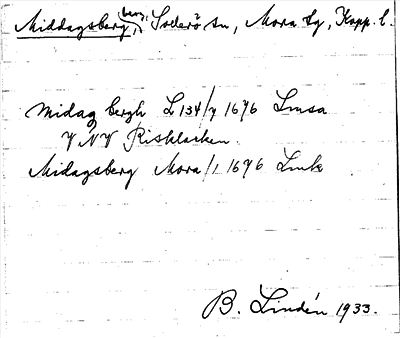 Middagsberg, berg, Sollerö sn, Mora tg, Kopp. l.
Midag bergh L 134/7 1676 Lmsa
V NV Risklacken.
Midagsberg Mora/1 1676 Lmk
B. Lindén 1933.